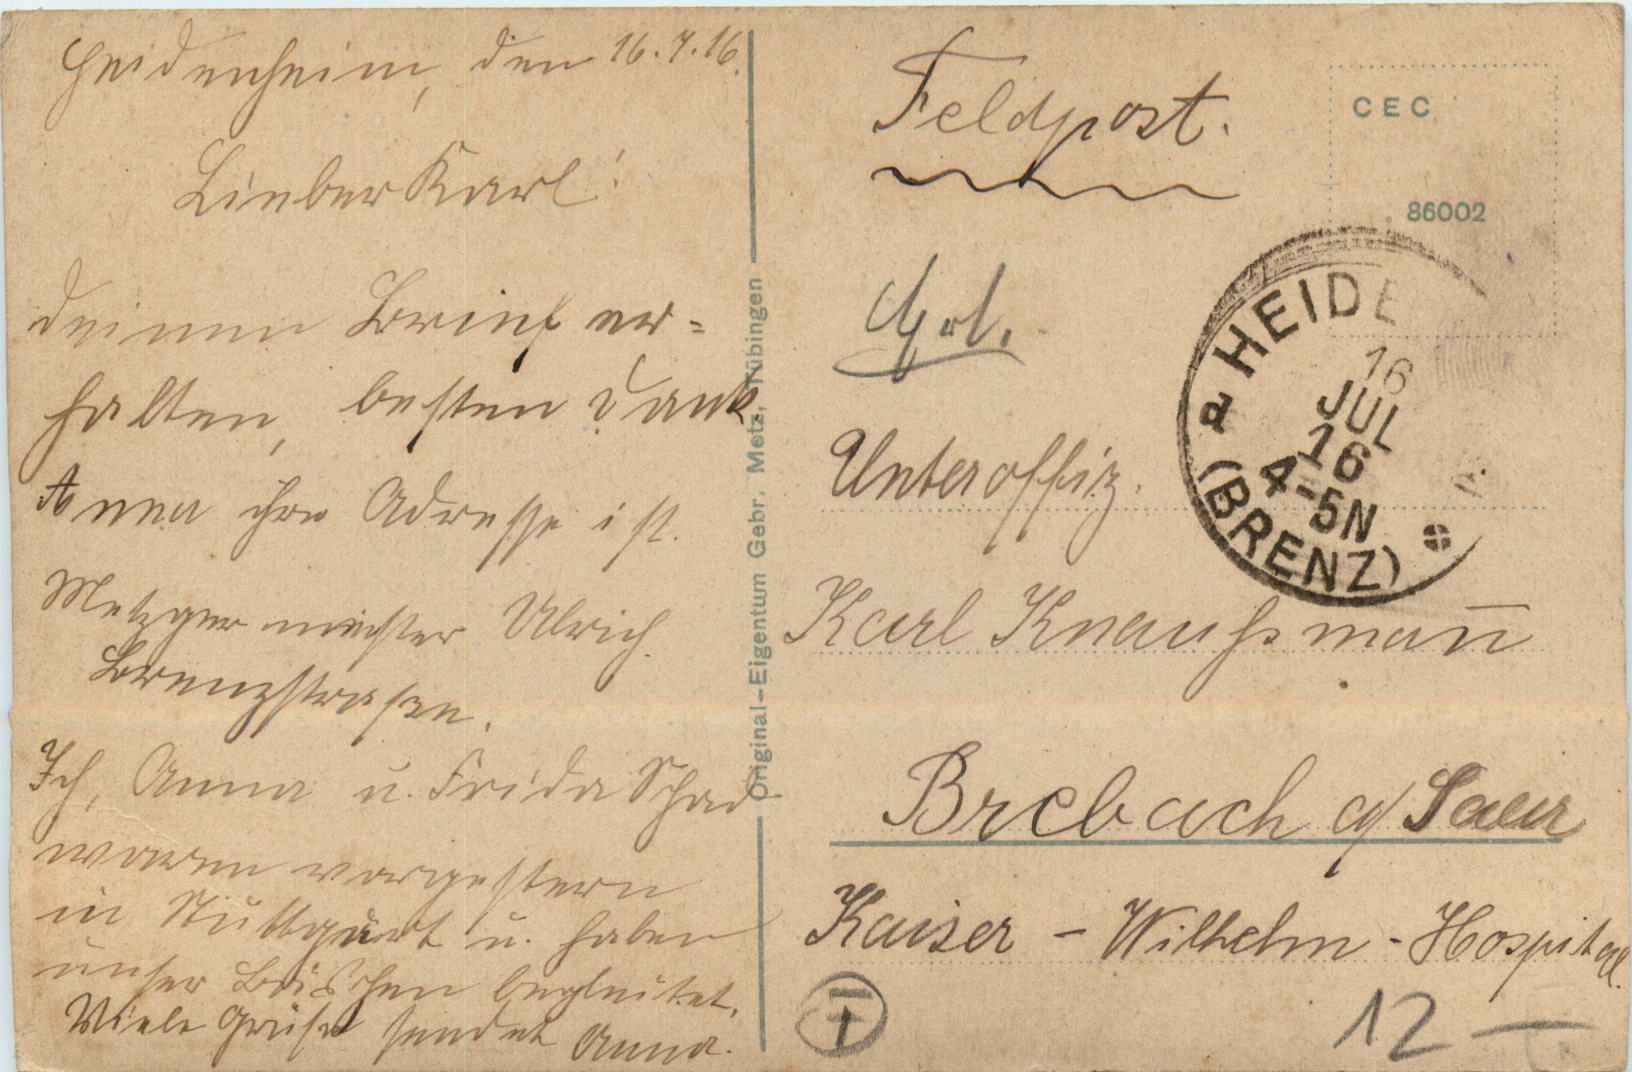 Heidenheim, den 16.7.16.
Lieber Karl!
deinen Brief er=
halten, besten Dank
Anna ihre Adresse ist.
Metzgermeister Ulrich.
Brenzstraße.
Ich, Anna u. Frida Schad
waren vorgestern
in Stuttgart u. haben
unser begleitet.
Viele Grüße sendet Anna.
Original-Eigentum Gebr. Metz, Tübingen
Feldpost.
CEC
86002
a HEIDE
16
JUL
16
4-5N
(BRENZ)
Unteroffiz.
Karl Knaußmañ
Brebach a/ Saar
Kaiser - Wilhelm - Hospital.
12 —